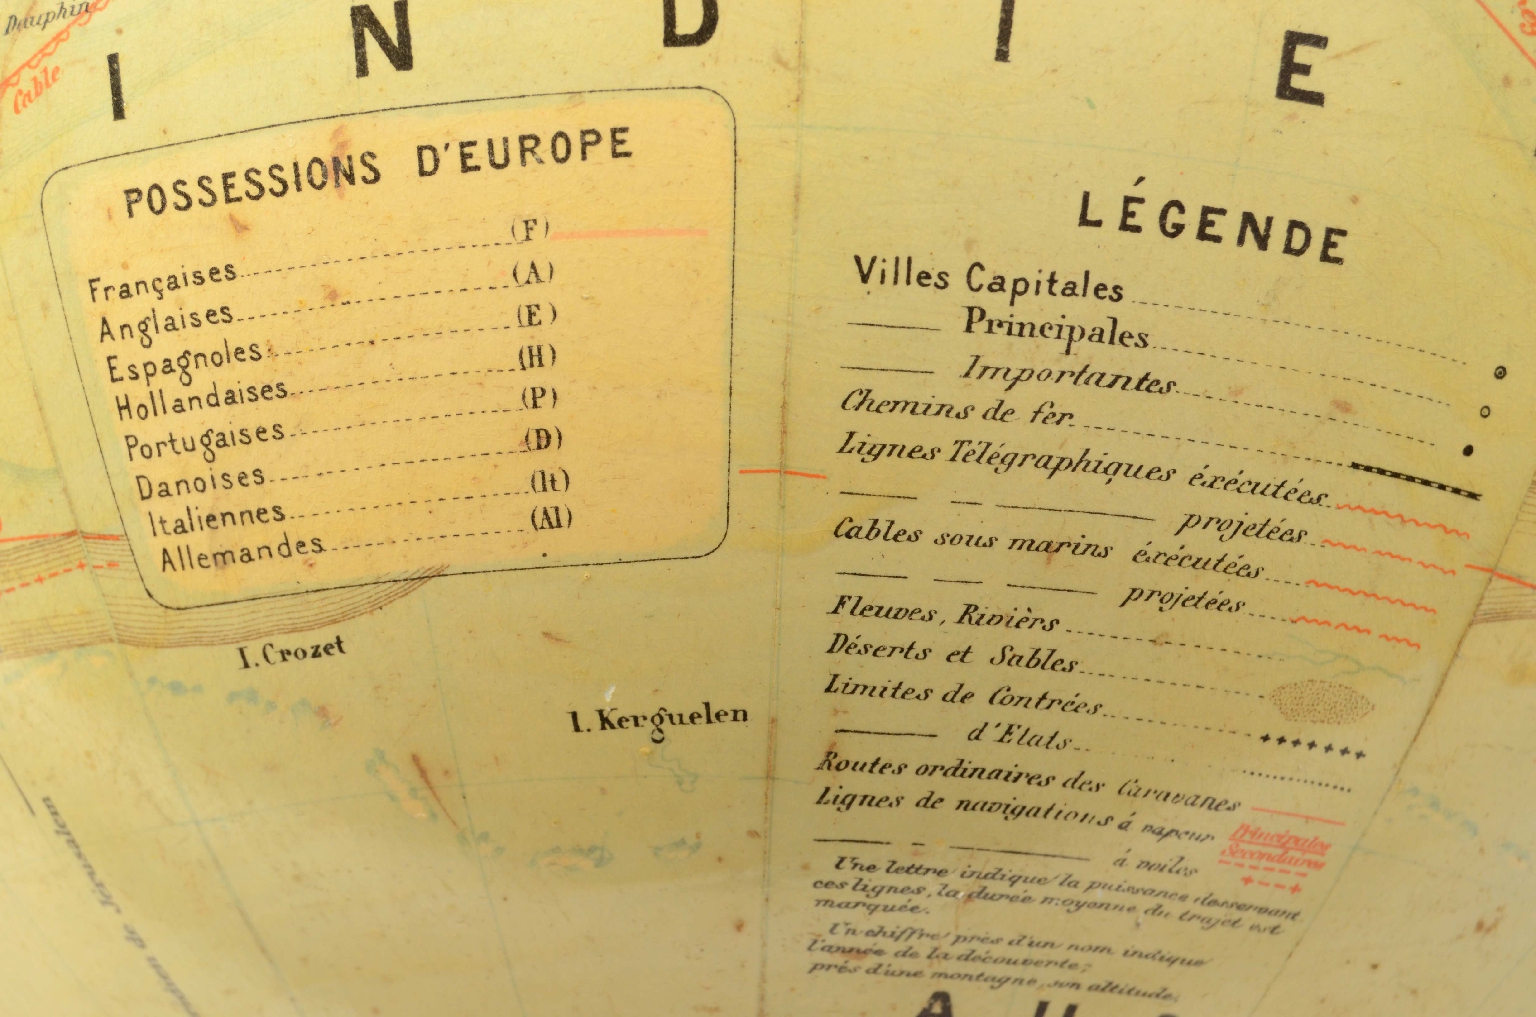 Dauphin
Cable
I N D I E
POSSESSIONS D'EUROPE
Françaises (F)
Anglaises (A)
Espagnoles (E)
Hollandaises (H)
Portugaises (P)
Danoises (D)
Italiennes (It)
Allemandes (Al)
I. Crozet
I. Kerguelen
LÉGENDE
Villes Capitales
Principales
Importantes
Chemins de fer
Lignes Télégraphiques éxécutées
projetées
Cables sous marins éxécutées
projetées
Fleuves, Rivièrs
Déserts et Sables
Limites de Contrées
d'Etats
Routes ordinaires des Caravanes
Lignes de navigations á vapeur Principales
Secondaires
á voiles
Une lettre indique la puissance desservant
ces lignes, la durée moyenne du trajet est
marquée.
Un chiffre près d'un nom indique
l'année de la découverte;
près d'une montagne, son altitude.
de Jerusalem